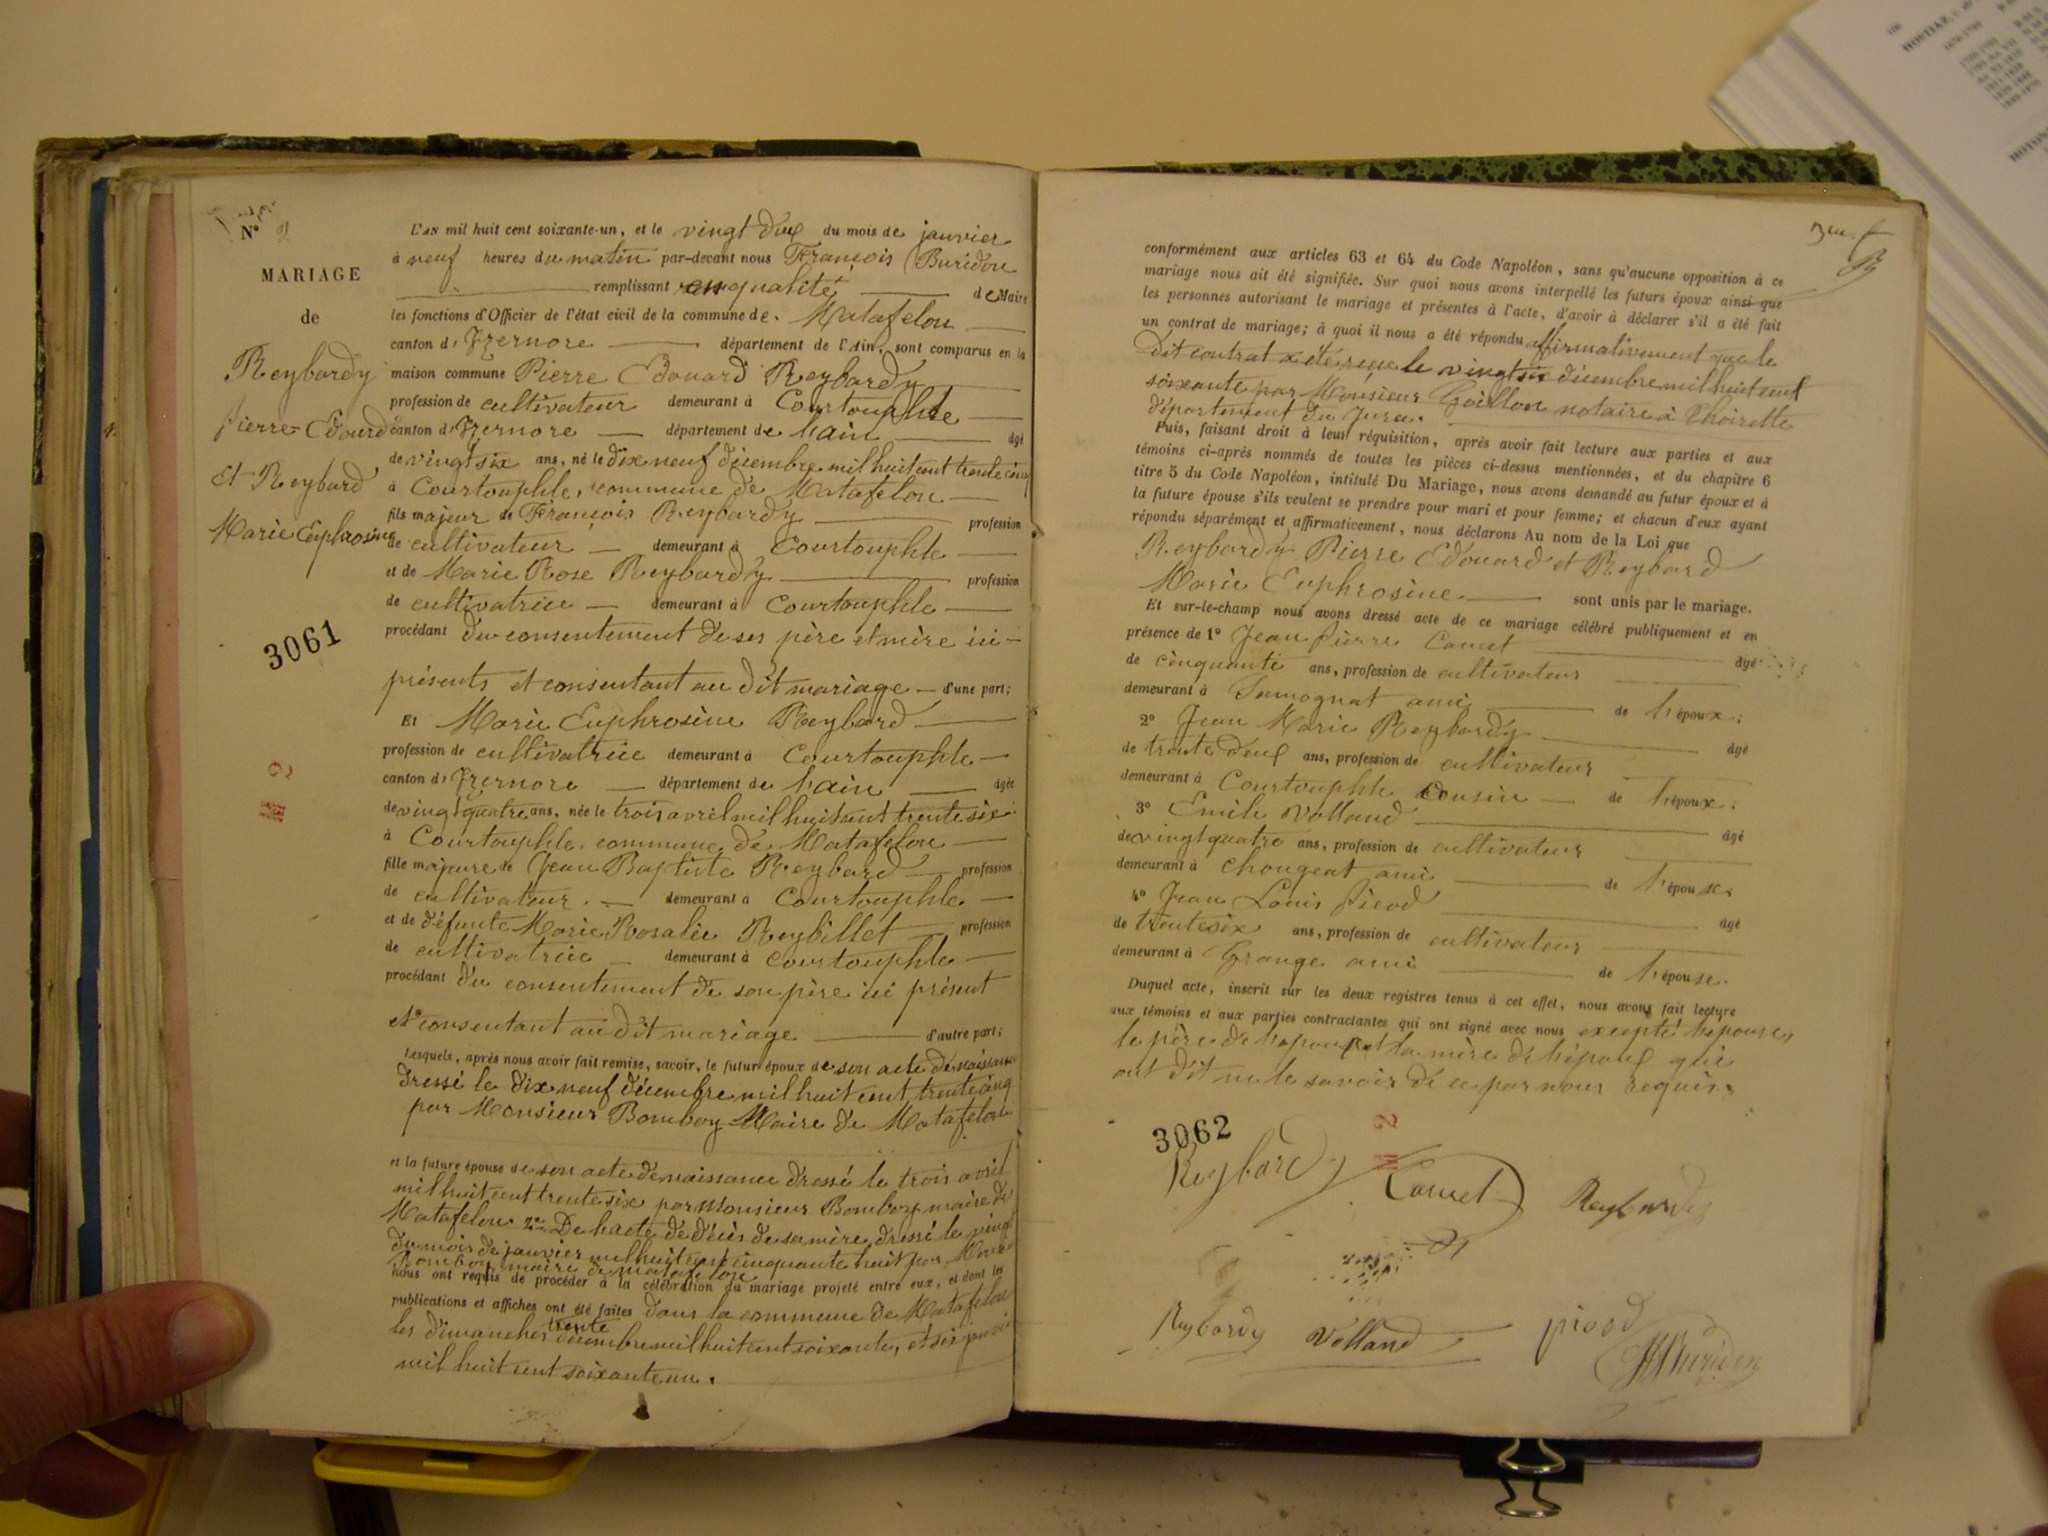 N° 2
MARIAGE
de
Reybardy
Pierre Edouard
Et Reybard
Marie Euphrosine
3061
M 2
L'AN mil huit cent soixante-un, et le vingt deux du mois de janvier
à neuf heures du matin par-devant nous François Buridon
remplissant en qualité de Maire
les fonctions d'Officier de l'état civil de la commune de Matafelon
canton d'Izernore département de l'Ain, sont comparus en la
maison commune Pierre Edouard Reybardy
profession de cultivateur demeurant à Courtouphle
canton d'Izernore département de l'ain âgé
de vingt six ans, né le dix neuf décembre mil huit cent trente cinq
à Courtouphle, commune de Matafelon
fils majeur de François Reybardy profession
de cultivateur demeurant à Courtouphle
et de Marie Rose Reybardy profession
de cultivatrice demeurant à Courtouphle
procédant du consentement de ses père et mère ici
présents et consentant au dit mariage d'une part;
Et Marie Euphrosine Reybard
profession de cultivatrice demeurant à Courtouphle
canton d'Izernore département de l'ain âgée
de vingt quatre ans, née le trois avril mil huit cent trente six
à Courtouphle, commune de Matafelon
fille majeure de Jean Baptiste Reybard profession
de cultivateur demeurant à Courtouphle
et de défunte Marie Rosalie Reybillet profession
de cultivatrice demeurant à courtouphle
procédant du consentement de son père ici présent
et consentant au dit mariage d'autre part;
Lesquels, après nous avoir fait remise, savoir, le futur époux de son acte de naissance
dressé le dix neuf décembre mil huit cent trente cinq
par Monsieur Bomboy Maire de Matafelon
et la future épouse de son acte de naissance dressé le trois avril
mil huit cent trente six par Monsieur Bomboy maire de
Matafelon 2° De l'acte de décès de sa mère dressé le vingt
du mois de janvier mil huit cent cinquante huit par
Bomboy maire de Matafelon
nous ont requis de procéder à la célébration du mariage projeté entre eux, et dont les
publications et affiches ont été faites dans la commune de Matafelon
les dimanches trente décembre mil huit cent soixante, et six janvier
mil huit cent soixante un.
conformément aux articles 63 et 64 du Code Napoléon, sans qu'aucune opposition à ce
mariage nous ait été signifiée. Sur quoi nous avons interpellé les futurs époux ainsi que
les personnes autorisant le mariage et présentes à l'acte, d'avoir à déclarer s'il a été fait
un contrat de mariage; à quoi il nous a été répondu affirmativement que le
dit contrat a été reçu le vingt six décembre mil huit cent
soixante par Monsieur Goillon notaire à Thoirette
département du Jura.
Puis, faisant droit à leur réquisition, après avoir fait lecture aux parties et aux
témoins ci-après nommés de toutes les pièces ci-dessus mentionnées, et du chapitre 6
titre 5 du Code Napoléon, intitulé Du Mariage, nous avons demandé au futur époux et à
la future épouse s'ils veulent se prendre pour mari et pour femme; et chacun d'eux ayant
répondu séparément et affirmativement, nous déclarons Au nom de la Loi que
Reybardy Pierre Edouard et Reybard
Marie Euphrosine sont unis par le mariage.
Et sur-le-champ nous avons dressé acte de ce mariage célébré publiquement et en
présence de 1° Jean Pierre Carret âgé
de cinquante ans, profession de cultivateur
demeurant à Samognat ami de l'époux;
2° Jean Marie Reybardy âgé
de trente deux ans, profession de cultivateur
demeurant à Courtouphle Cousin de l'époux;
3° Emile Volland âgé
de vingt quatre ans, profession de cultivateur
demeurant à chougeat ami de l'épouse.
4° Jean Louis Piood âgé
de trente six ans, profession de cultivateur
demeurant à Grange ami de l'épouse.
Duquel acte, inscrit sur les deux registres tenus à cet effet, nous avons fait lecture
aux témoins et aux parties contractantes qui ont signé avec nous excepté l'épouse,
le père de l'époux et la mère de l'époux qui
ont dit ne le savoir de ce par nous requis.
3062
M 2
Reybardy Carret Reybardy
Reybardy Volland piood
Buridon